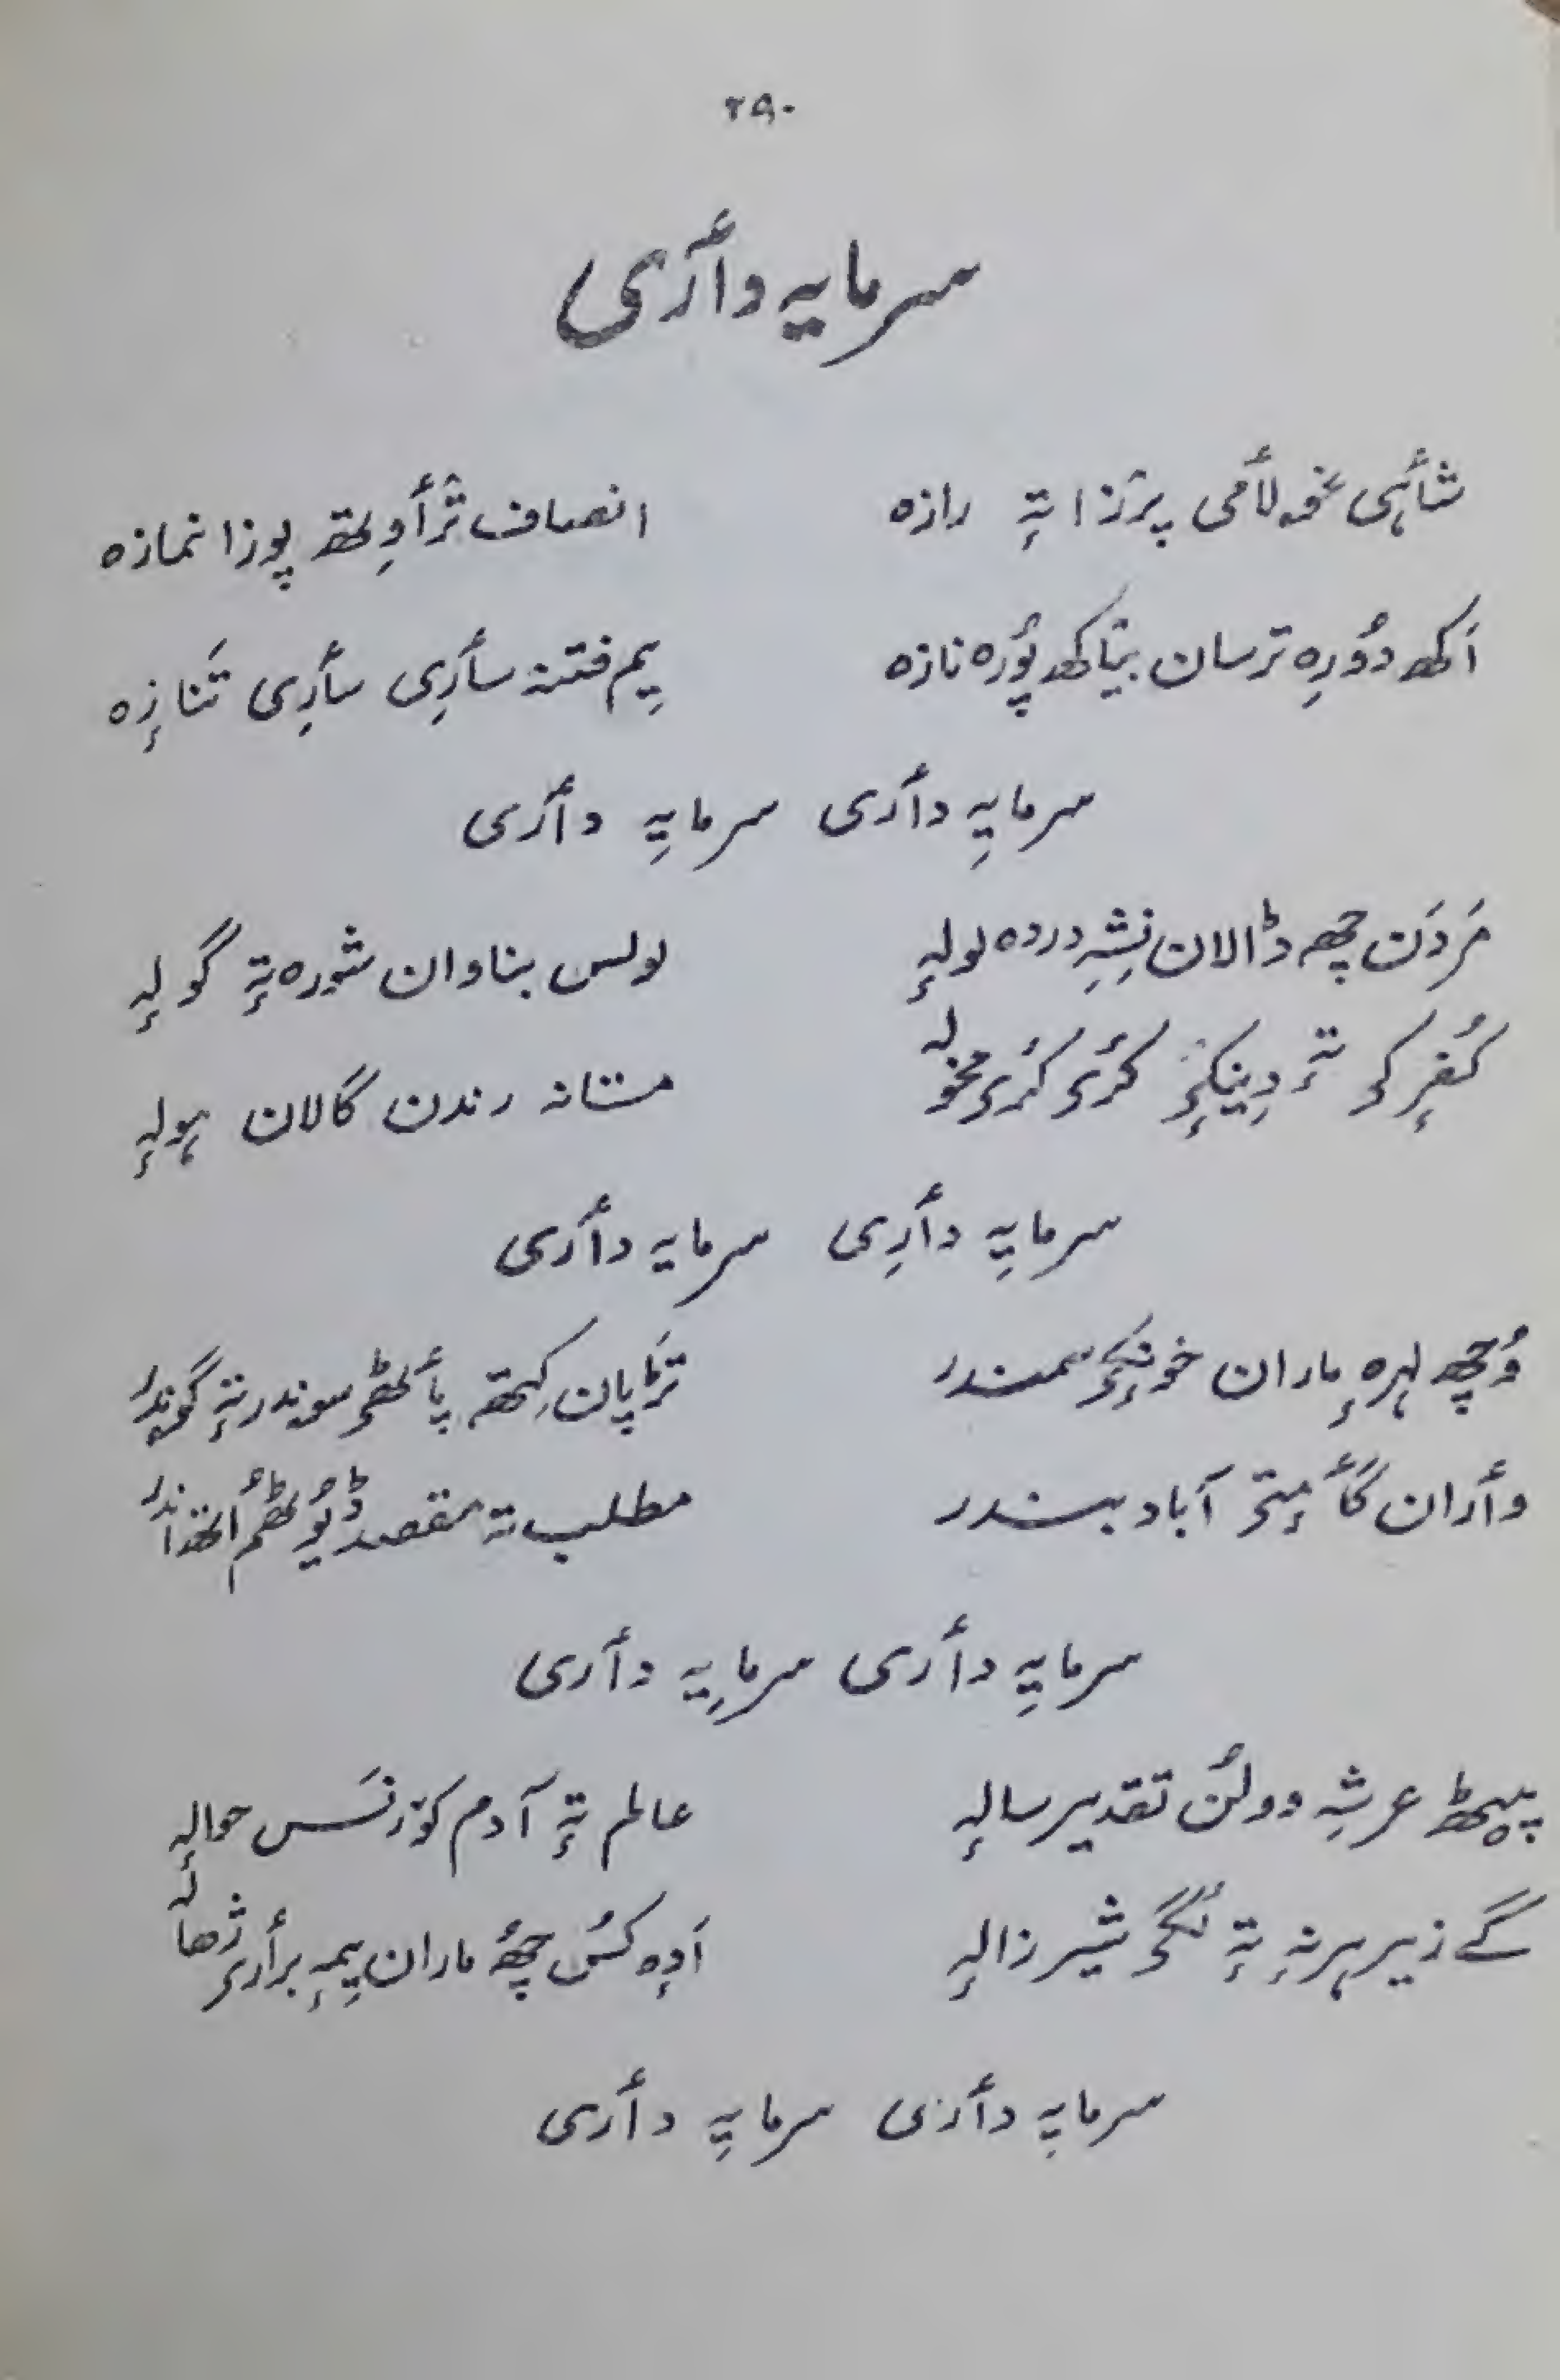 ۲۹۰
سرمایہ دأری
شأہی غولأمی پرٛزا تہٕ رازہ انصاف ترٛأوِتھ پوزا نمازہ
اَکھ دوٗرِہ ترسان بیٛاکھ پوٗرہ نازہ یِم فتنہ سأری سأری تَنازہٕ
سرمایہِ دأری سرمایہِ دأری
مَردَن چھِ ڈالان نِشہِ دردہ لولہٕ لولس بناوان شورہ تہٕ گولہٕ
کُفرٕکۍ تہٕ دِینکۍ کرۍ کرۍ مخولہ مستانہ رندن گالان ہولہٕ
سرمایہِ دأری سرمایہ دأری
وُچھ لہرہٕ ماران خونٕکۍ سمندر ترٛپان کِتھ پأٹھۍ سوندر تہٕ گوندر
وأران گأمٕتۍ آباد بندر مطلب تہ مقصد ڈیوٗٹھُم اتھ اندر
سرمایہِ دأری سرمایہِ دأری
پیٹھ عرشہِ وولُن تقدیر سالہٕ عالم تہٕ آدم کوٚرنَس حوالہٕ
گے زیر ہرنہٕ تہٕ لگۍ شیر زالہٕ اَدٕہ کُس چھُ ماران یِمہٕ برأرۍ ژھالہٕ
سرمایہِ دأری سرمایہِ دأری